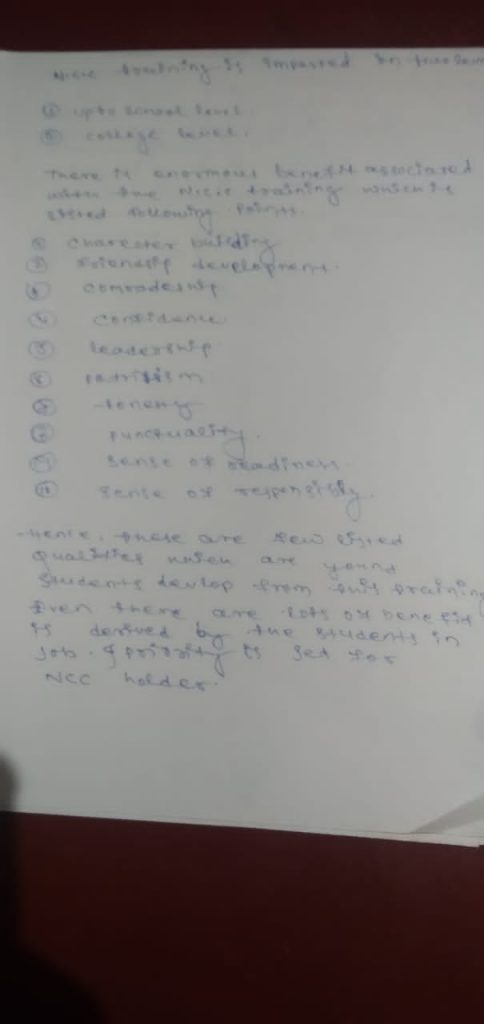 N.C.C training is imparted in two
① upto school level.
② college level.
There is enormous benefit associated
the N.C.C training which is
listed following points.
① charecter building
② friendship development.
③ comradeship
④ confidence
⑤ leadership
⑥ patritism
⑦ honesty
⑧ punctuality.
⑨ sense of readiness.
⑩ sense of responsibly.
Hence, these are few listed
qualities which are young
students devlop from this training
Even there are lots of benefit
is derived by the students in
job. & priority is set for
NCC holder.